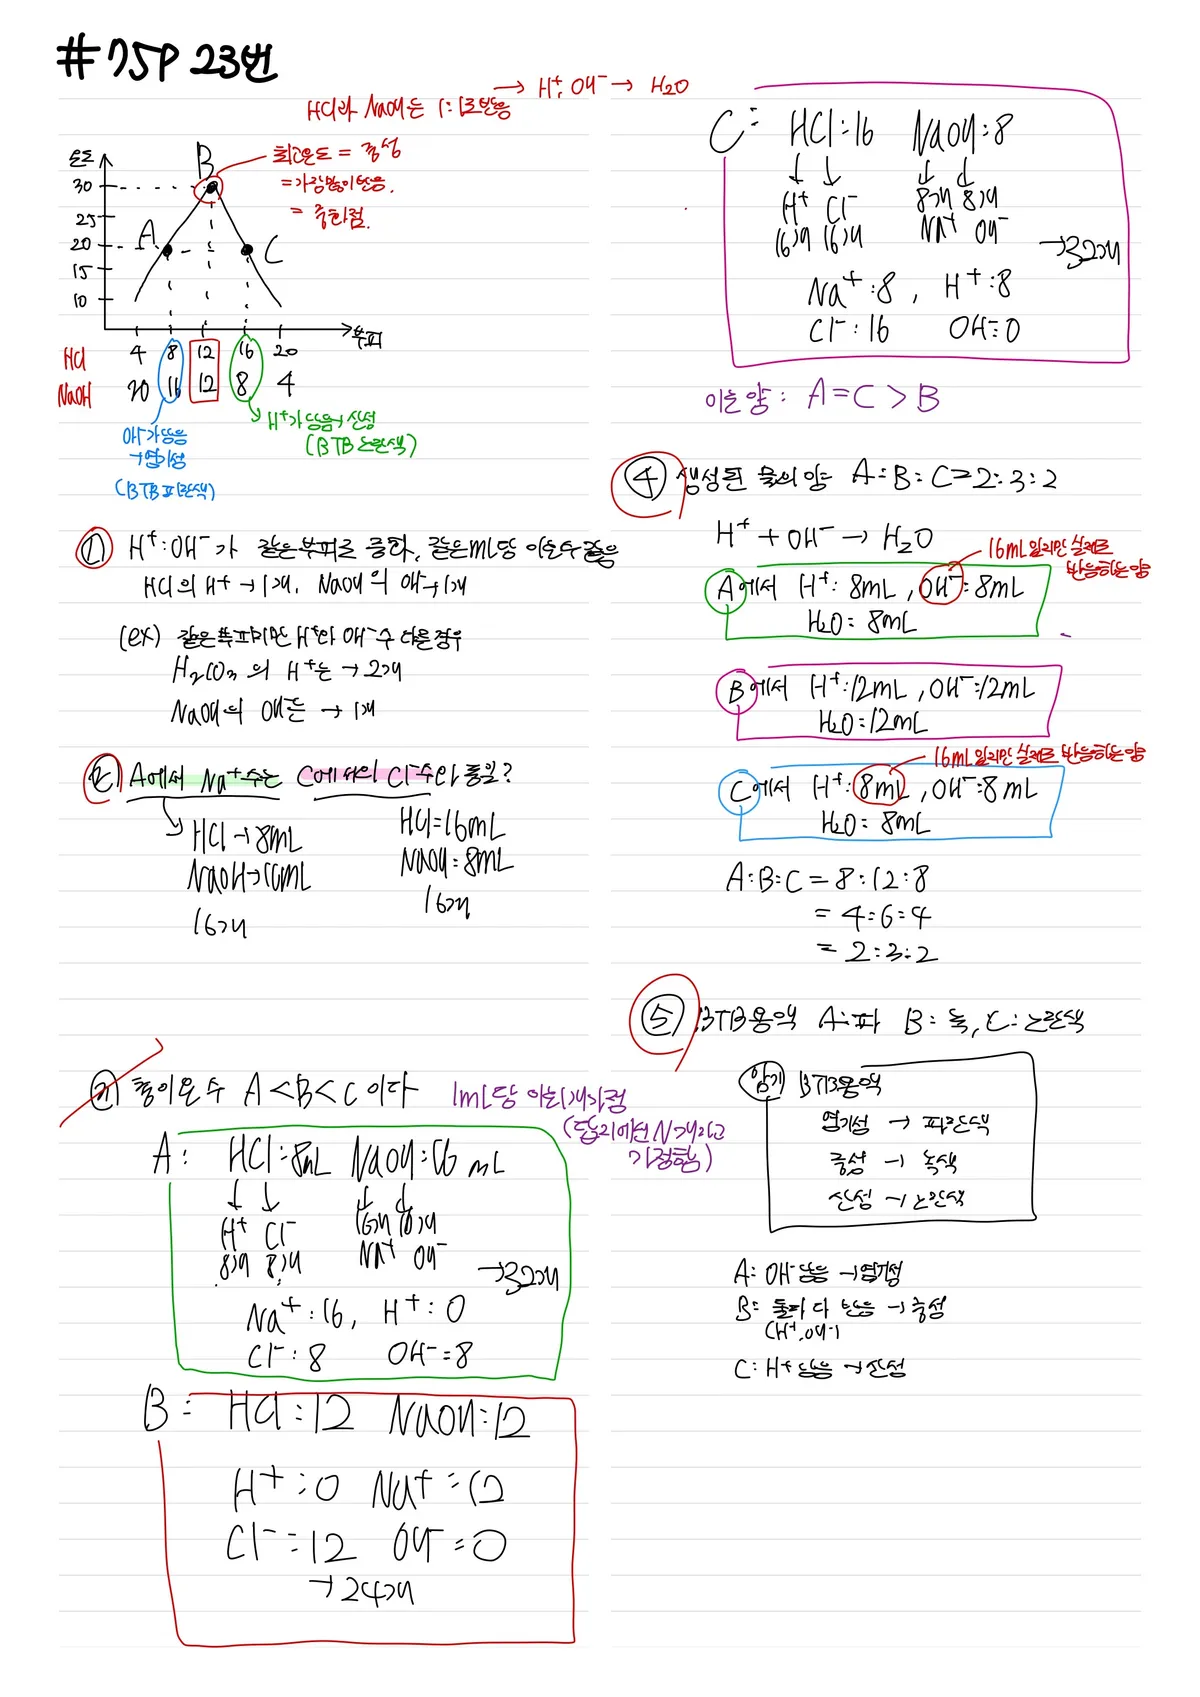 #75P 23번
HCl과 NaOH는 1:1로 반응
→ H⁺, OH⁻ → H₂O
온도
30
25
20
15
10
A
B
C
최고온도 = 중성
= 가장 많이 반응.
= 중화점.
부피
HCl 4 8 12 16 20
NaOH 20 16 12 8 4
OH⁻가 많음
→염기성
(BTB 파란색)
H⁺가 많음→산성
(BTB 노란색)
① H⁺:OH⁻가 같은부피로 중화, 같은mL당 이온수 같음
HCl의 H⁺→1개, NaOH의 OH⁻→1개
(ex) 같은부피지만 H⁺와 OH⁻수 다른경우
H₂CO₃의 H⁺는 → 2개
NaOH의 OH는 → 1개
② A에서 Na⁺수는 C에서의 Cl⁻수와 동일?
HCl→8mL
NaOH→16mL
16개
HCl=16mL
NaOH=8mL
16개
③ 총이온수 A<B<C이다
1mL당 이온1개가정
(딴데에선 N개라고
가정함)
A: HCl:8mL NaOH:16mL
↓ ↓ ↓ ↓
H⁺ Cl⁻ 16개 16개
8개 8개 Na⁺ OH⁻
→32개
Na⁺:16, H⁺:0
Cl⁻:8 OH⁻=8
B= HCl:12 NaOH:12
H⁺:0 Na⁺:12
Cl⁻=12 OH⁻=0
→24개
C= HCl:16 NaOH:8
↓ ↓ ↓ ↓
H⁺ Cl⁻ 8개 8개
16개 16개 Na⁺ OH⁻
→32개
Na⁺:8, H⁺:8
Cl⁻:16 OH⁻=0
이온양: A=C>B
④ 생성된 물의양 A:B:C=2:3:2
H⁺+OH⁻→H₂O
16mL 있지만 실제로
반응하는양
A에서 H⁺:8mL, OH⁻:8mL
H₂O=8mL
B에서 H⁺:12mL, OH⁻:12mL
H₂O=12mL
16mL 있지만 실제로 반응하는양
C에서 H⁺:8mL, OH⁻=8mL
H₂O=8mL
A:B:C=8:12:8
=4:6:4
=2:3:2
⑤ BTB용액 A:파 B:녹, C:노란색
암기 BTB용액
염기성 → 파란색
중성 → 녹색
산성 → 노란색
A: OH⁻많음→염기성
B= 둘다 다 반응→중성
(H⁺,OH⁻)
C: H⁺ 많음→산성